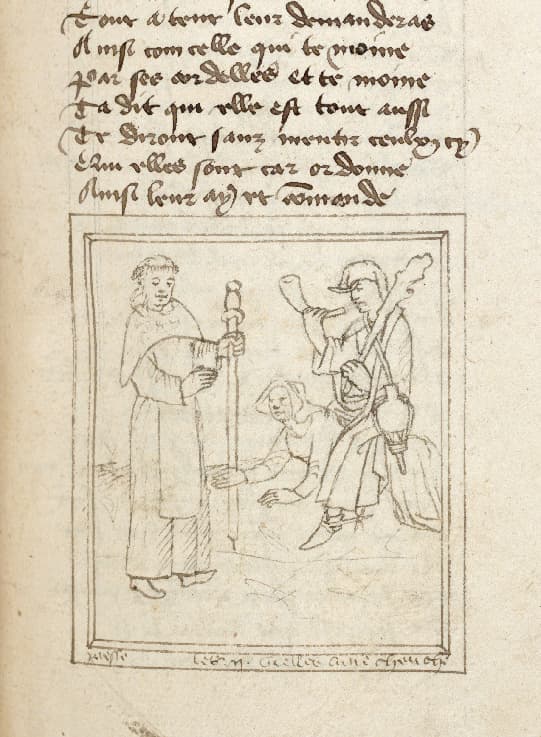 Tout a tour leur demanderas
Ainsi com celle qui te moine
Par ses cordelles et te moine
Ta dit qui elle est tout aussi
Te diront sanz mentir ceulx cy
Qui elles sont car ordonne
Ainsi leur ay et commande
les ij vielles lune